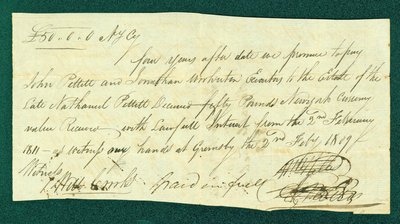 £50..0..0 NYCy
four years after date we promise to pay
John Pettett and Jonathan Woolverton Executors to the Estate of the
Late Nathaniel Pettett Deceased fifty Pounds Newyork Currency
value Received with Lawfull Interest from the 2nd February
1811 — as witness our hands at Grimsby the 2nd Feby 1809
Witness
Crooks paid in full